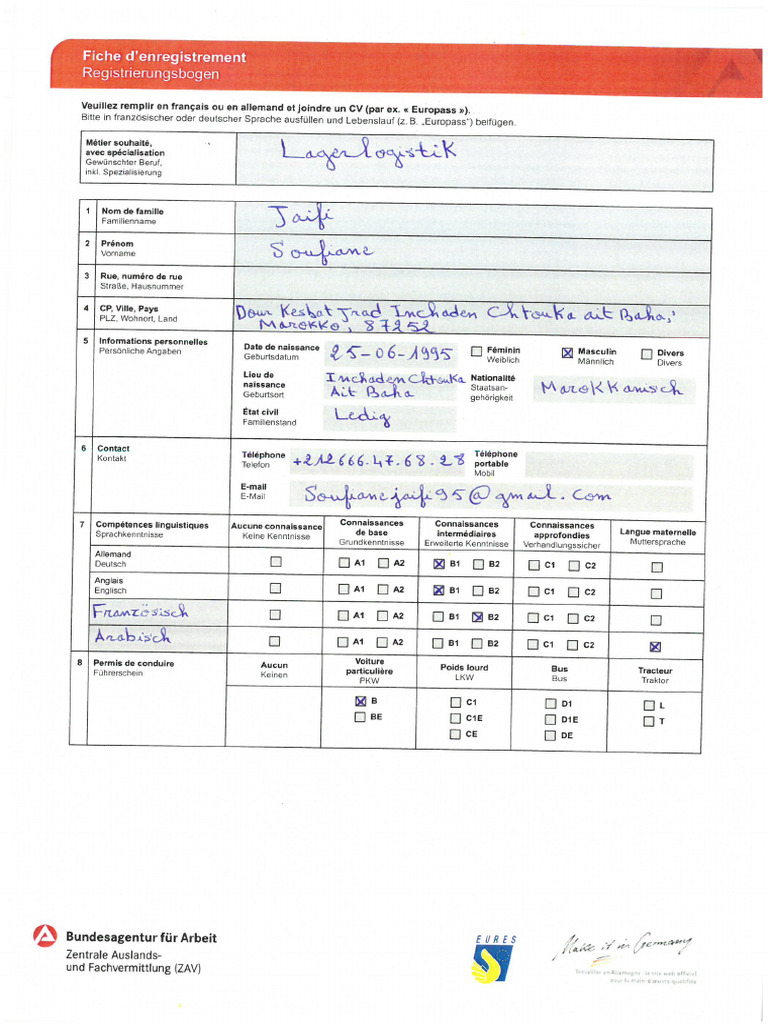 Fiche d'enregistrement
Registrierungsbogen
Veuillez remplir en français ou en allemand et joindre un CV (par ex. « Europass »).
Bitte in französischer oder deutscher Sprache ausfüllen und Lebenslauf (z. B. „Europass") beifügen.
Métier souhaité,
avec spécialisation
Gewünschter Beruf,
inkl. Spezialisierung
Lagerlogistik
1 Nom de famille
Familienname
Jaifi
2 Prénom
Vorname
Soufiane
3 Rue, numéro de rue
Straße, Hausnummer
4 CP, Ville, Pays
PLZ, Wohnort, Land
Dour Kesbat Jrad Inchaden Chtouka ait Baha,
Marokko, 87252
5 Informations personnelles
Persönliche Angaben
Date de naissance
Geburtsdatum
25-06-1995
Féminin
Weiblich
Masculin
Männlich
Divers
Divers
Lieu de
naissance
Geburtsort
Inchaden Chtouka
Ait Baha
Nationalité
Staatsan-
gehörigkeit
Marokkanisch
État civil
Familienstand
Ledig
6 Contact
Kontakt
Téléphone
Telefon
+212666.47.68.28
Téléphone
portable
Mobil
E-mail
E-Mail
Soufianejaifi95@gmail.com
7 Compétences linguistiques
Sprachkenntnisse
Aucune connaissance
Keine Kenntnisse
Connaissances
de base
Grundkenntnisse
Connaissances
intermédiaires
Erweiterte Kenntnisse
Connaissances
approfondies
Verhandlungssicher
Langue maternelle
Muttersprache
Allemand
Deutsch
A1 A2 B1 B2 C1 C2
Anglais
Englisch
A1 A2 B1 B2 C1 C2
Französisch
A1 A2 B1 B2 C1 C2
Arabisch
A1 A2 B1 B2 C1 C2
8 Permis de conduire
Führerschein
Aucun
Keinen
Voiture
particulière
PKW
Poids lourd
LKW
Bus
Bus
Tracteur
Traktor
B C1 D1 L
BE C1E D1E T
CE DE
Bundesagentur für Arbeit
Zentrale Auslands-
und Fachvermittlung (ZAV)
EURES
Make it in Germany
Travailler en Allemagne : le site web officiel
pour la main-d'œuvre qualifiée